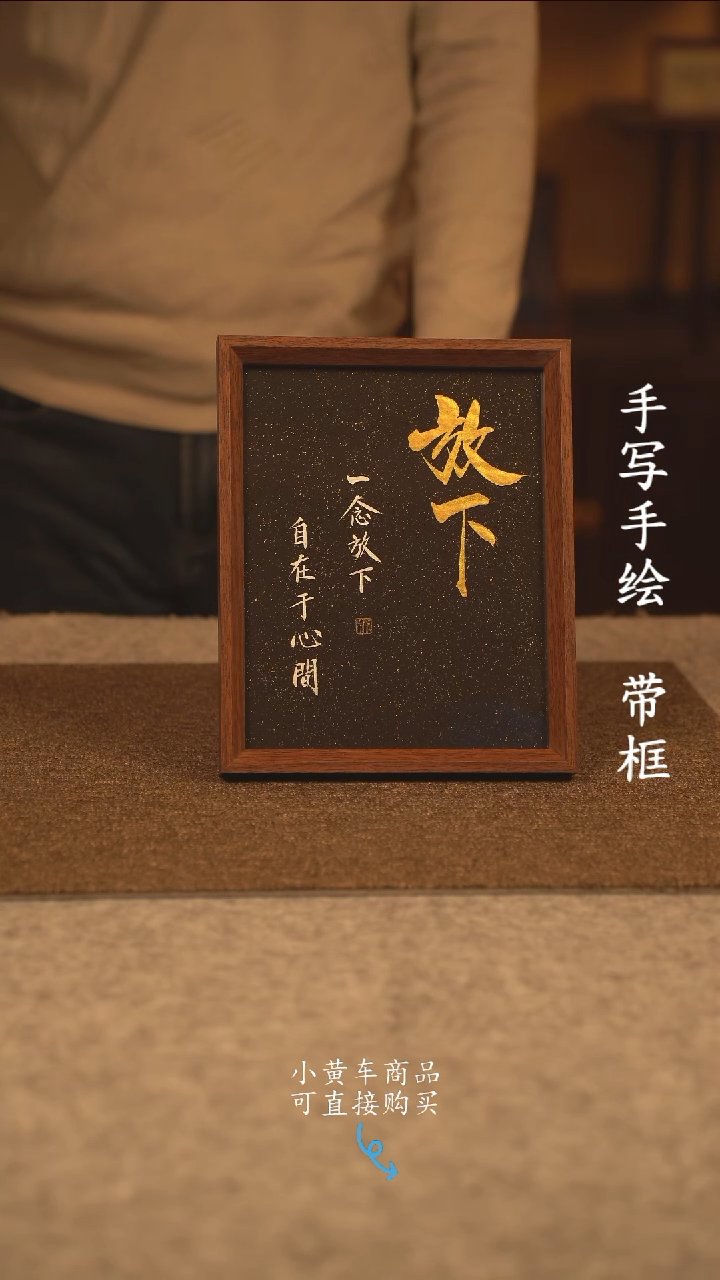 放下
一念放下
自在于心間
手写手绘 带框
小黄车商品
可直接购买